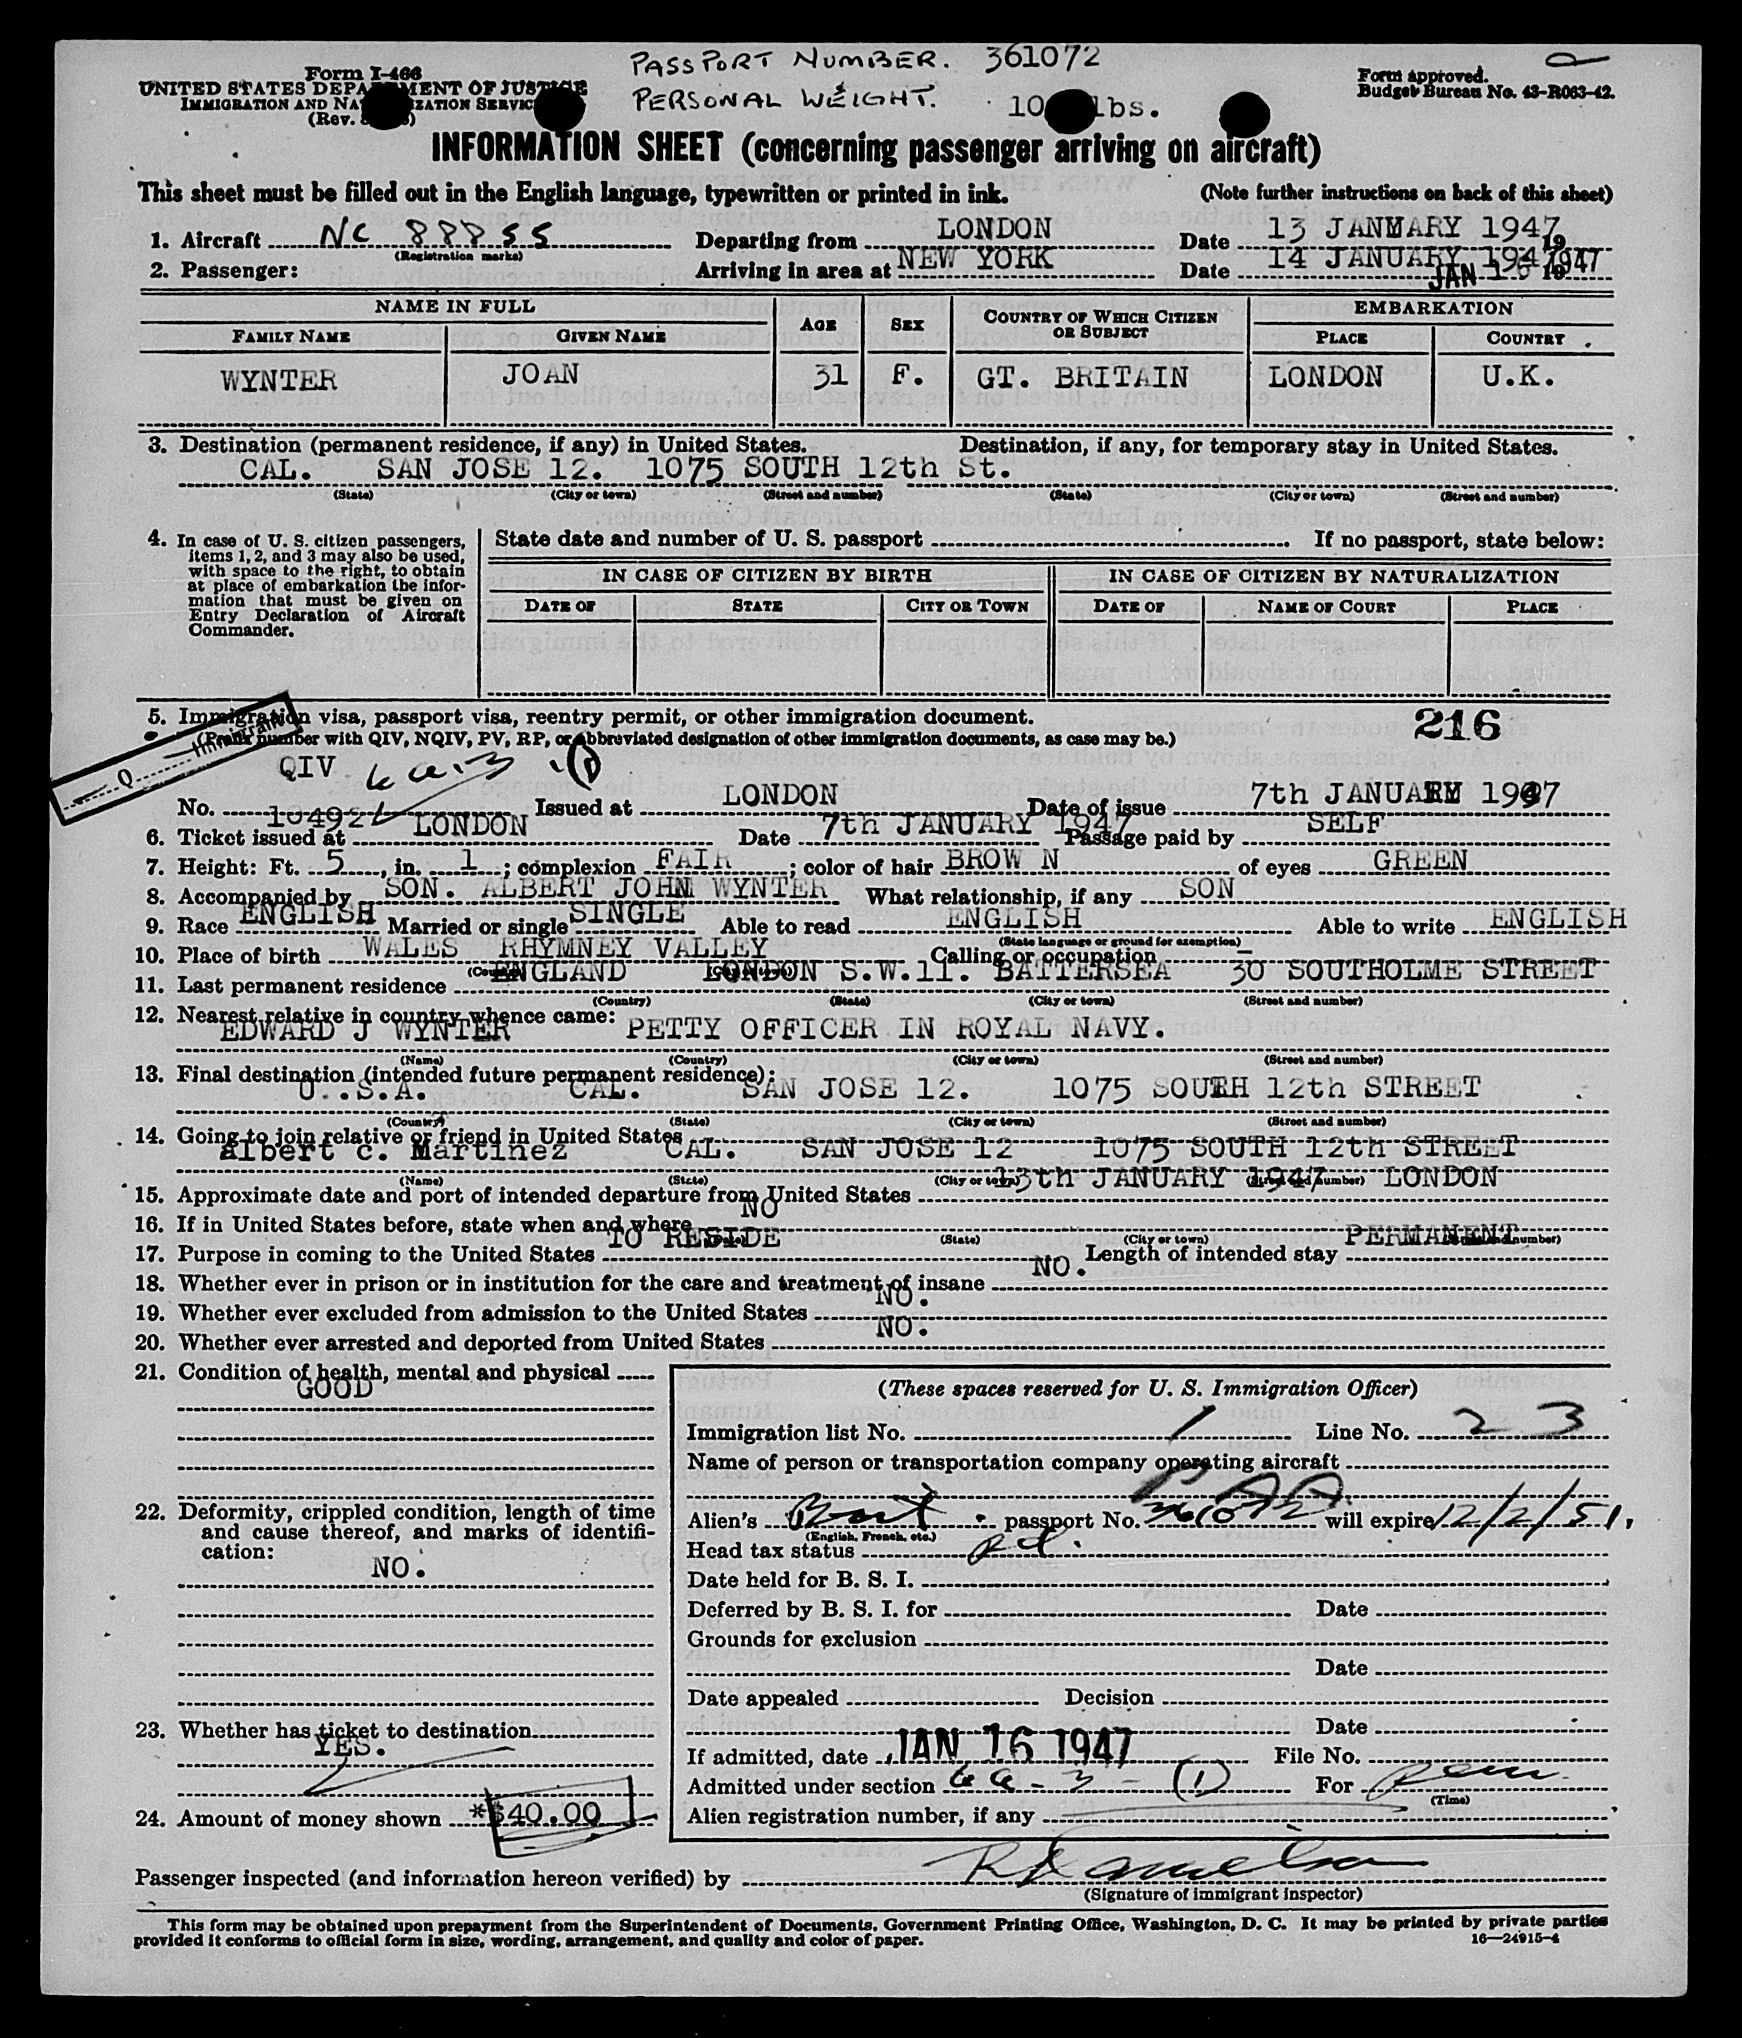 PASSPORT NUMBER. 361072
Form I-466
UNITED STATES DEPARTMENT OF JUSTICE
IMMIGRATION AND NATURALIZATION SERVICE
(Rev.
PERSONAL WEIGHT. 10 lbs.
Form approved.
Budget Bureau No. 43-R063-42.
INFORMATION SHEET (concerning passenger arriving on aircraft)
This sheet must be filled out in the English language, typewritten or printed in ink. (Note further instructions on back of this sheet)
1. Aircraft NC 88855 Departing from LONDON Date 13 JANUARY 1947 19
(Registration marks)
2. Passenger: Arriving in area at NEW YORK Date 14 JANUARY 1947 19
JAN 16 1947
NAME IN FULL AGE SEX COUNTRY OF WHICH CITIZEN OR SUBJECT EMBARKATION
FAMILY NAME GIVEN NAME PLACE COUNTRY
WYNTER JOAN 31 F. GT. BRITAIN LONDON U.K.
3. Destination (permanent residence, if any) in United States. Destination, if any, for temporary stay in United States.
CAL. SAN JOSE 12. 1075 SOUTH 12th St.
(State) (City or town) (Street and number) (State) (City or town) (Street and number)
4. In case of U. S. citizen passengers, items 1, 2, and 3 may also be used, with space to the right, to obtain at place of embarkation the information that must be given on Entry Declaration of Aircraft Commander.
State date and number of U. S. passport If no passport, state below:
IN CASE OF CITIZEN BY BIRTH IN CASE OF CITIZEN BY NATURALIZATION
DATE OF STATE CITY OR TOWN DATE OF NAME OF COURT PLACE
5. Immigration visa, passport visa, reentry permit, or other immigration document. 216
(Prefix number with QIV, NQIV, PV, RP, or abbreviated designation of other immigration documents, as case may be.)
Q Immigrant
QIV 6a-3 (1)
No. 10492 Issued at LONDON Date of issue 7th JANUARY 1947
6. Ticket issued at LONDON Date 7th JANUARY 1947 Passage paid by SELF
7. Height: Ft. 5, in. 1; complexion FAIR; color of hair BROWN of eyes GREEN
8. Accompanied by SON. ALBERT JOHN WYNTER What relationship, if any SON
9. Race ENGLISH Married or single SINGLE Able to read ENGLISH Able to write ENGLISH
(State language or ground for exemption)
10. Place of birth WALES RHYMNEY VALLEY Calling or occupation —
11. Last permanent residence ENGLAND LONDON S.W.11. BATTERSEA 30 SOUTHOLME STREET
(Country) (State) (City or town) (Street and number)
12. Nearest relative in country whence came:
EDWARD J WYNTER PETTY OFFICER IN ROYAL NAVY.
(Name) (Country) (City or town) (Street and number)
13. Final destination (intended future permanent residence):
U..S.A. CAL. SAN JOSE 12. 1075 SOUTH 12th STREET
(Country) (State) (City or town) (Street and number)
14. Going to join relative or friend in United States
Albert c. Martinez CAL. SAN JOSE 12 1075 SOUTH 12th STREET
(Name) (State) (City or town) (Street and number)
15. Approximate date and port of intended departure from United States 13th JANUARY 1947 LONDON
16. If in United States before, state when and where NO
(State) (City or town) (Street and number)
17. Purpose in coming to the United States TO RESIDE Length of intended stay PERMANENT
18. Whether ever in prison or in institution for the care and treatment of insane NO.
19. Whether ever excluded from admission to the United States NO.
20. Whether ever arrested and deported from United States NO.
21. Condition of health, mental and physical
GOOD
22. Deformity, crippled condition, length of time
and cause thereof, and marks of identifi-
cation:
NO.
23. Whether has ticket to destination
YES.
24. Amount of money shown *$40.00
(These spaces reserved for U. S. Immigration Officer)
Immigration list No. 1 Line No. 23
Name of person or transportation company operating aircraft
PAA
Alien's Brit passport No. 361072 will expire 12/2/51.
(English, French, etc.)
Head tax status pd.
Date held for B. S. I.
Deferred by B. S. I. for Date
Grounds for exclusion
Date
Date appealed Decision
Date
If admitted, date JAN 16 1947 File No.
Admitted under section 6a-3-(1) For perm
(Time)
Alien registration number, if any
Passenger inspected (and information hereon verified) by
(Signature of immigrant inspector)
This form may be obtained upon prepayment from the Superintendent of Documents, Government Printing Office, Washington, D. C. It may be printed by private parties
provided it conforms to official form in size, wording, arrangement, and quality and color of paper. 16—24915-4